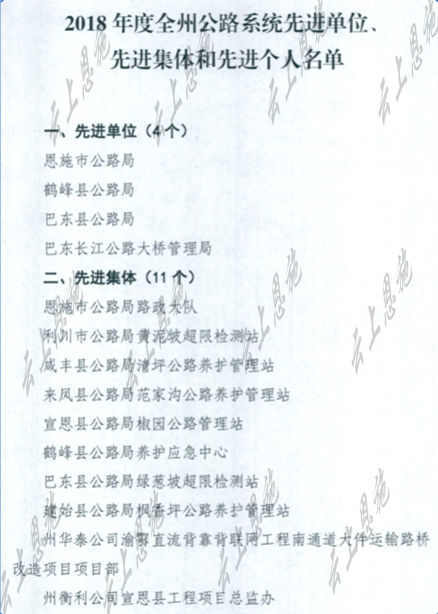 2018年度全州公路系统先进单位、
先进集体和先进个人名单
一、先进单位（4个）
恩施市公路局
鹤峰县公路局
巴东县公路局
巴东长江公路大桥管理局
二、先进集体（11个）
恩施市公路局路政大队
利川市公路局黄泥坡超限检测站
咸丰县公路局清坪公路养护管理站
来凤县公路局范家沟公路养护管理站
宣恩县公路局椒园公路管理站
鹤峰县公路局养护应急中心
巴东县公路局绿葱坡超限检测站
建始县公路局枫香坪公路养护管理站
州华泰公司渝鄂直流背靠背联网工程南通道大件运输路桥
改造项目项目部
州衡利公司宣恩县工程项目总监办
云上恩施
云上恩施
云上恩施
云上恩施
云上恩施
云上恩施
云上恩施
云上恩施
云上恩施